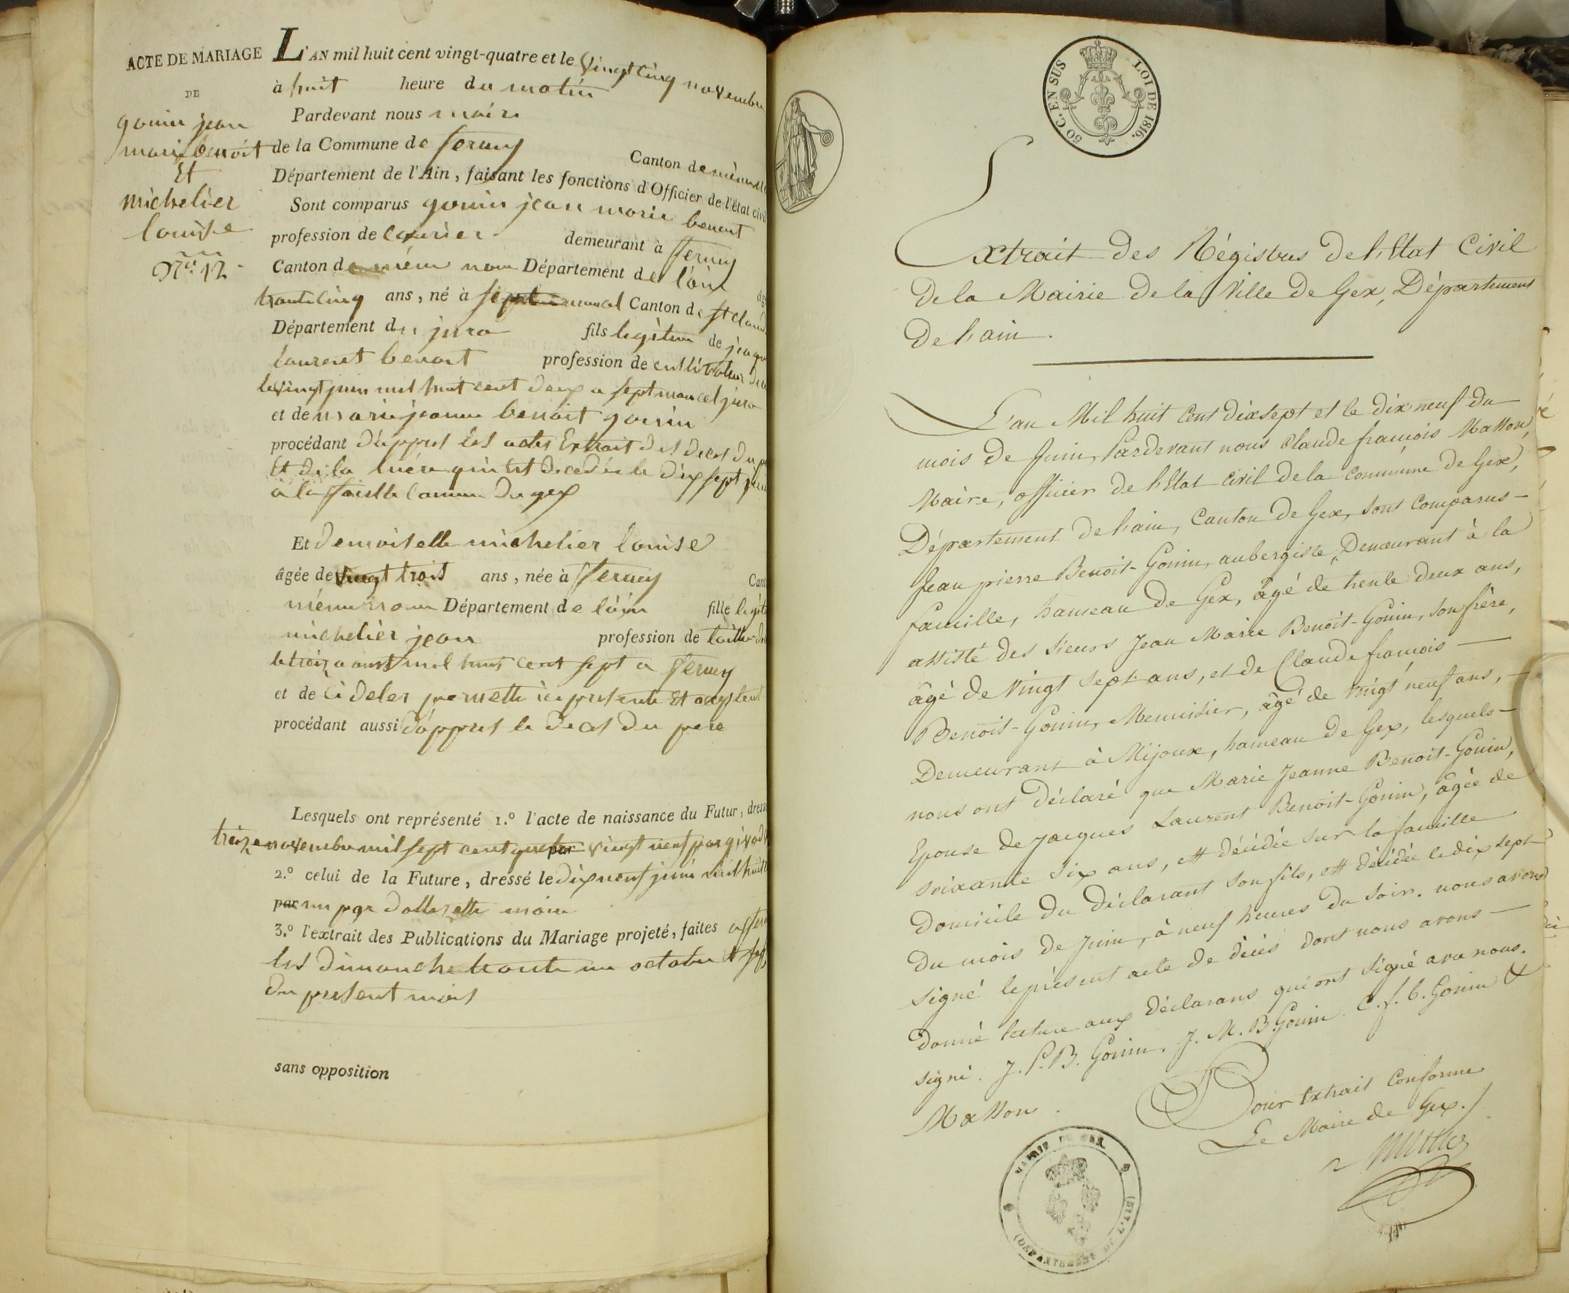 ACTE DE MARIAGE
DE
gouin jean
marie benoit
Et
michelier
louise
N.º 12.
L'AN mil huit cent vingt-quatre et le vingt cinq novembre
à huit heure du matin
Pardevant nous maire
de la Commune de ferney Canton de même
Département de l'Ain, faisant les fonctions d'Officier de l'état civil
Sont comparus gouin jean marie benoit
profession de demeurant à ferney
Canton de même nom Département de l'ain
trente cinq ans, né à septmoncel Canton de st claude
Département du jura fils legitime de jacques
laurent benoit profession de cultivateur
le vingt juin mil huit cent deux a septmoncel jura
et de marie jeanne benoit gouin
procédant d'appres les actes Extrait des deces du
Et de la mère qui est decedée le dix sept juin
à la faucille commune de gex
Et demoiselle michelier louise
âgée de vingt trois ans, née à ferney
même nom Département de l'ain fille
michelier jean profession de
le treize aoust mil huit cent sept a ferney
et de presente Et
procédant aussi d'appres le deces du pere
Lesquels ont représenté 1.º l'acte de naissance du Futur,
treize novembre mil sept cent quatre vingt neuf par
2.º celui de la Future, dressé le dix neuf juin mil huit
par
3.º l'extrait des Publications du Mariage projeté, faites
les dimanche trente un octobre & sept
du present mois
sans opposition
50 C. EN SUS
LOI DE 1816.
Extrait des Régistres de l'Etat Civil
de la Mairie de la Ville de Gex, Département
de l'ain.
L'an Mil huit Cent dix sept et le dix neuf du
mois de Juin, Pardevant nous Claude françois Matton,
Maire, officier de l'Etat civil de la Commune de Gex,
Département de l'ain, Canton de Gex, sont comparus
Jean pierre Benoit-Gonin, aubergiste, Demeurant à la
faucille, hameau de Gex, âgé de trente deux ans,
assisté des sieurs Jean Marie Benoit-Gonin, son frère,
âgé de Vingt sept ans, et de Claude françois
Benoit-Gonin, Menuisier, âgé de vingt neuf ans,
Demeurant à Mijoux, hameau de Gex, lesquels
nous ont déclaré que Marie Jeanne Benoit-Gonin,
Epouse de Jacques Laurent Benoit-Gonin, âgée de
soixante six ans, est décédée sur la faucille
Domicile du Déclarant son fils, est décédée le dix sept
du mois de Juin, à neuf heures du soir. nous avons
signé le présent acte de décès dont nous avons
donné lecture aux déclarans qui ont signé avec nous.
signé. J. P. B. Gonin. J. M. B. Gonin. C. f. b. Gonin &
Matton.
Pour Extrait Conforme
Le Maire de Gex.
MAIRIE DE GEX.